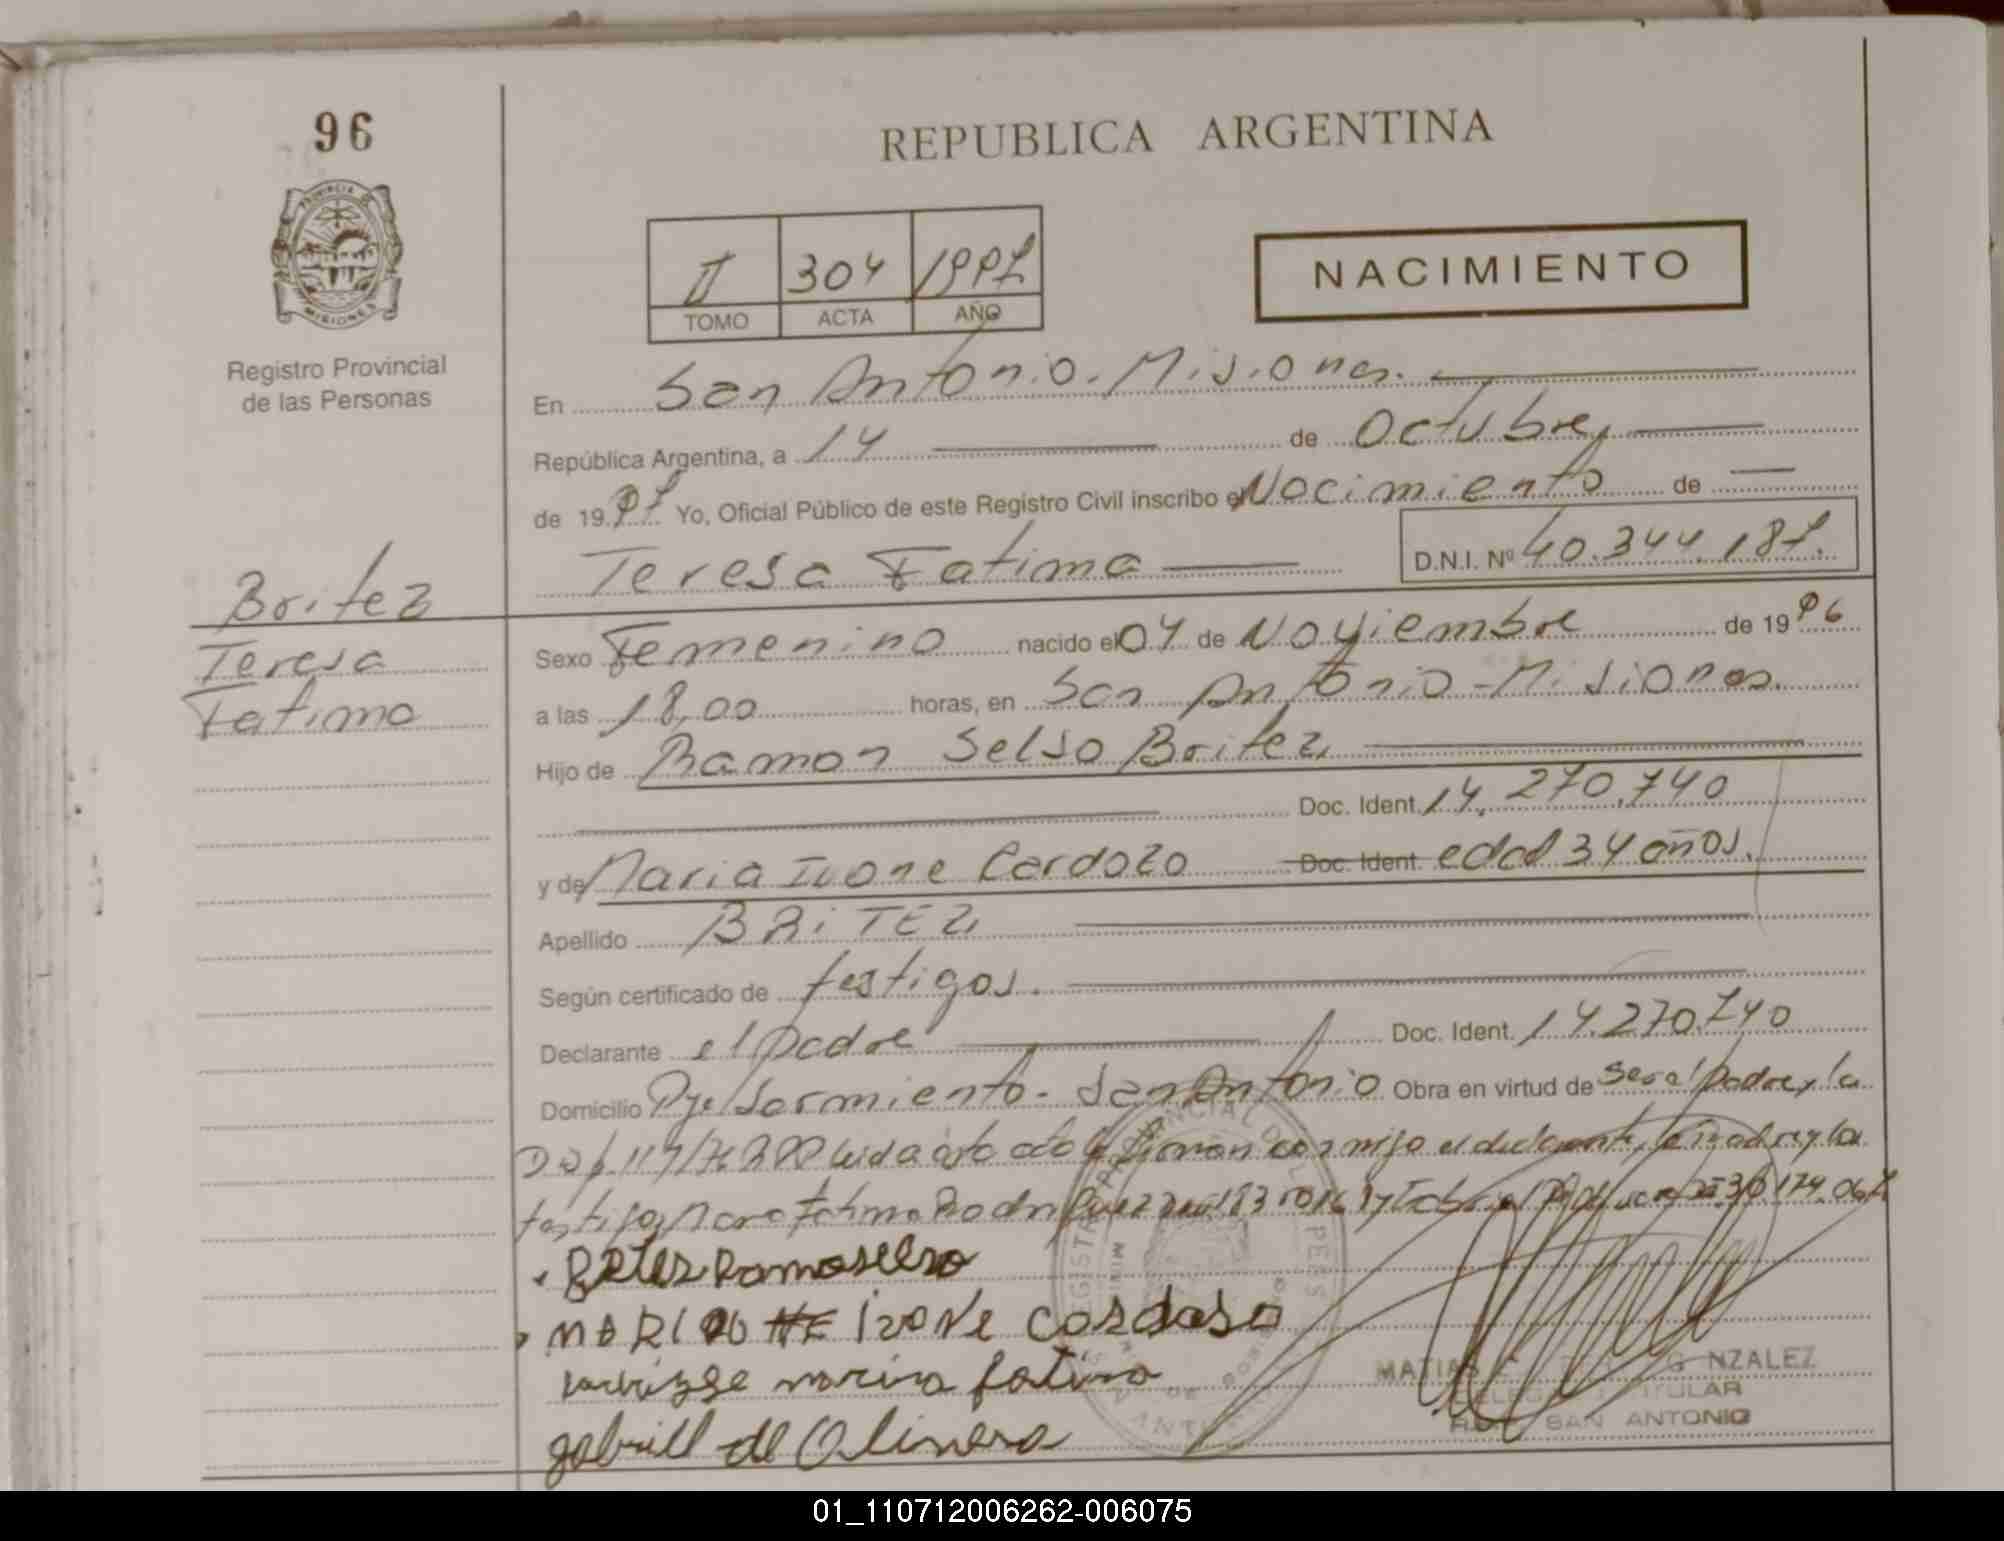 96
REPUBLICA ARGENTINA
PROVINCIA DE
MISIONES
Registro Provincial
de las Personas
II 304 1997
TOMO ACTA AÑO
NACIMIENTO
En San Antonio. Misiones.
República Argentina, a 14 de Octubre,
de 1997. Yo, Oficial Público de este Registro Civil inscribo el Nacimiento de
Teresa Fatima D.N.I. Nº 40.344.187.
Britez
Teresa
Fatima
Sexo Femenino nacido el 04 de Noviembre de 1996
a las 18,00 horas, en San Antonio - Misiones.
Hijo de Ramon Selso Britez
Doc. Ident. 14.270.740
y de Maria Ivone Cardozo Doc. Ident. edad 34 años.
Apellido BRiTEZ
Según certificado de testigos.
Declarante el padre Doc. Ident. 14.270.740
Domicilio Pje/Sarmiento - San Antonio Obra en virtud de ser el padre y la
firman conmigo el declarante, la madre y los
testigos
MARIA IVONE CARDOSO
marina fatima
gabriel de Olivera
MATIAS NZALEZ
TITULAR
SAN ANTONIO
01_110712006262-006075